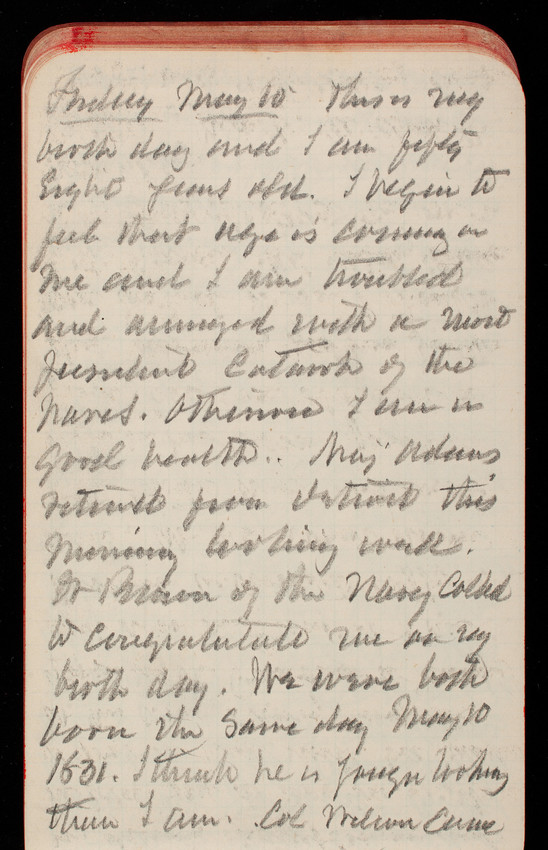 Friday May 10 This is my
birth day and I am fifty
Eight years old. I begin to
feel that age is coming on
me and I am troubled
and annoyed with a most
persistent Catarrh of the
nares. Otherwise I am in
good health. Maj Adams
returned from Detroit this
Morning looking well.
Lt Brown of the Navy Called
to Congratulate me on my
birth day. We were both
born the same day May 10
1831. I think he is younger looking
than I am. Col Wilson came